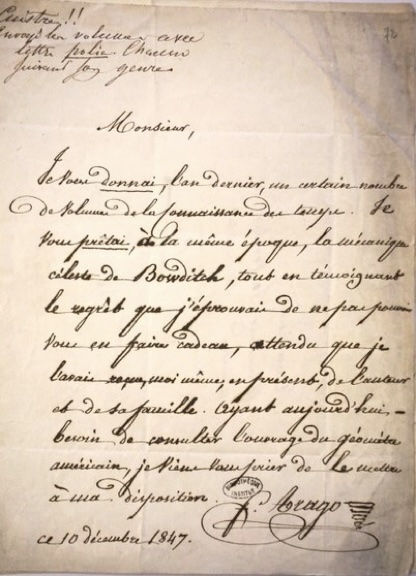 Cuistre!!
Envoyé les volumes avec
lettre polie. Chacun
suivant son genre
72
Monsieur,
Je vous donnai, l'an dernier, un certain nombre
de volumes de la connaissance des temps. Je
vous prêtai, à la même époque, la mécanique
céleste de Bowditch, tout en témoignant
le regrêt que j'éprouvais de ne pas pouvoir
vous en faire cadeau, attendu que je
l'avais reçu, moi même, en présent, de l'auteur
et de sa famille. Ayant aujourd'hui
besoin de consulter l'ouvrage du géomètre
américain, je viens vous prier de le mettre
à ma disposition.
BIBLIOTHÈQUE INSTITUT
f. Arago
ce 10 décembre 1847.